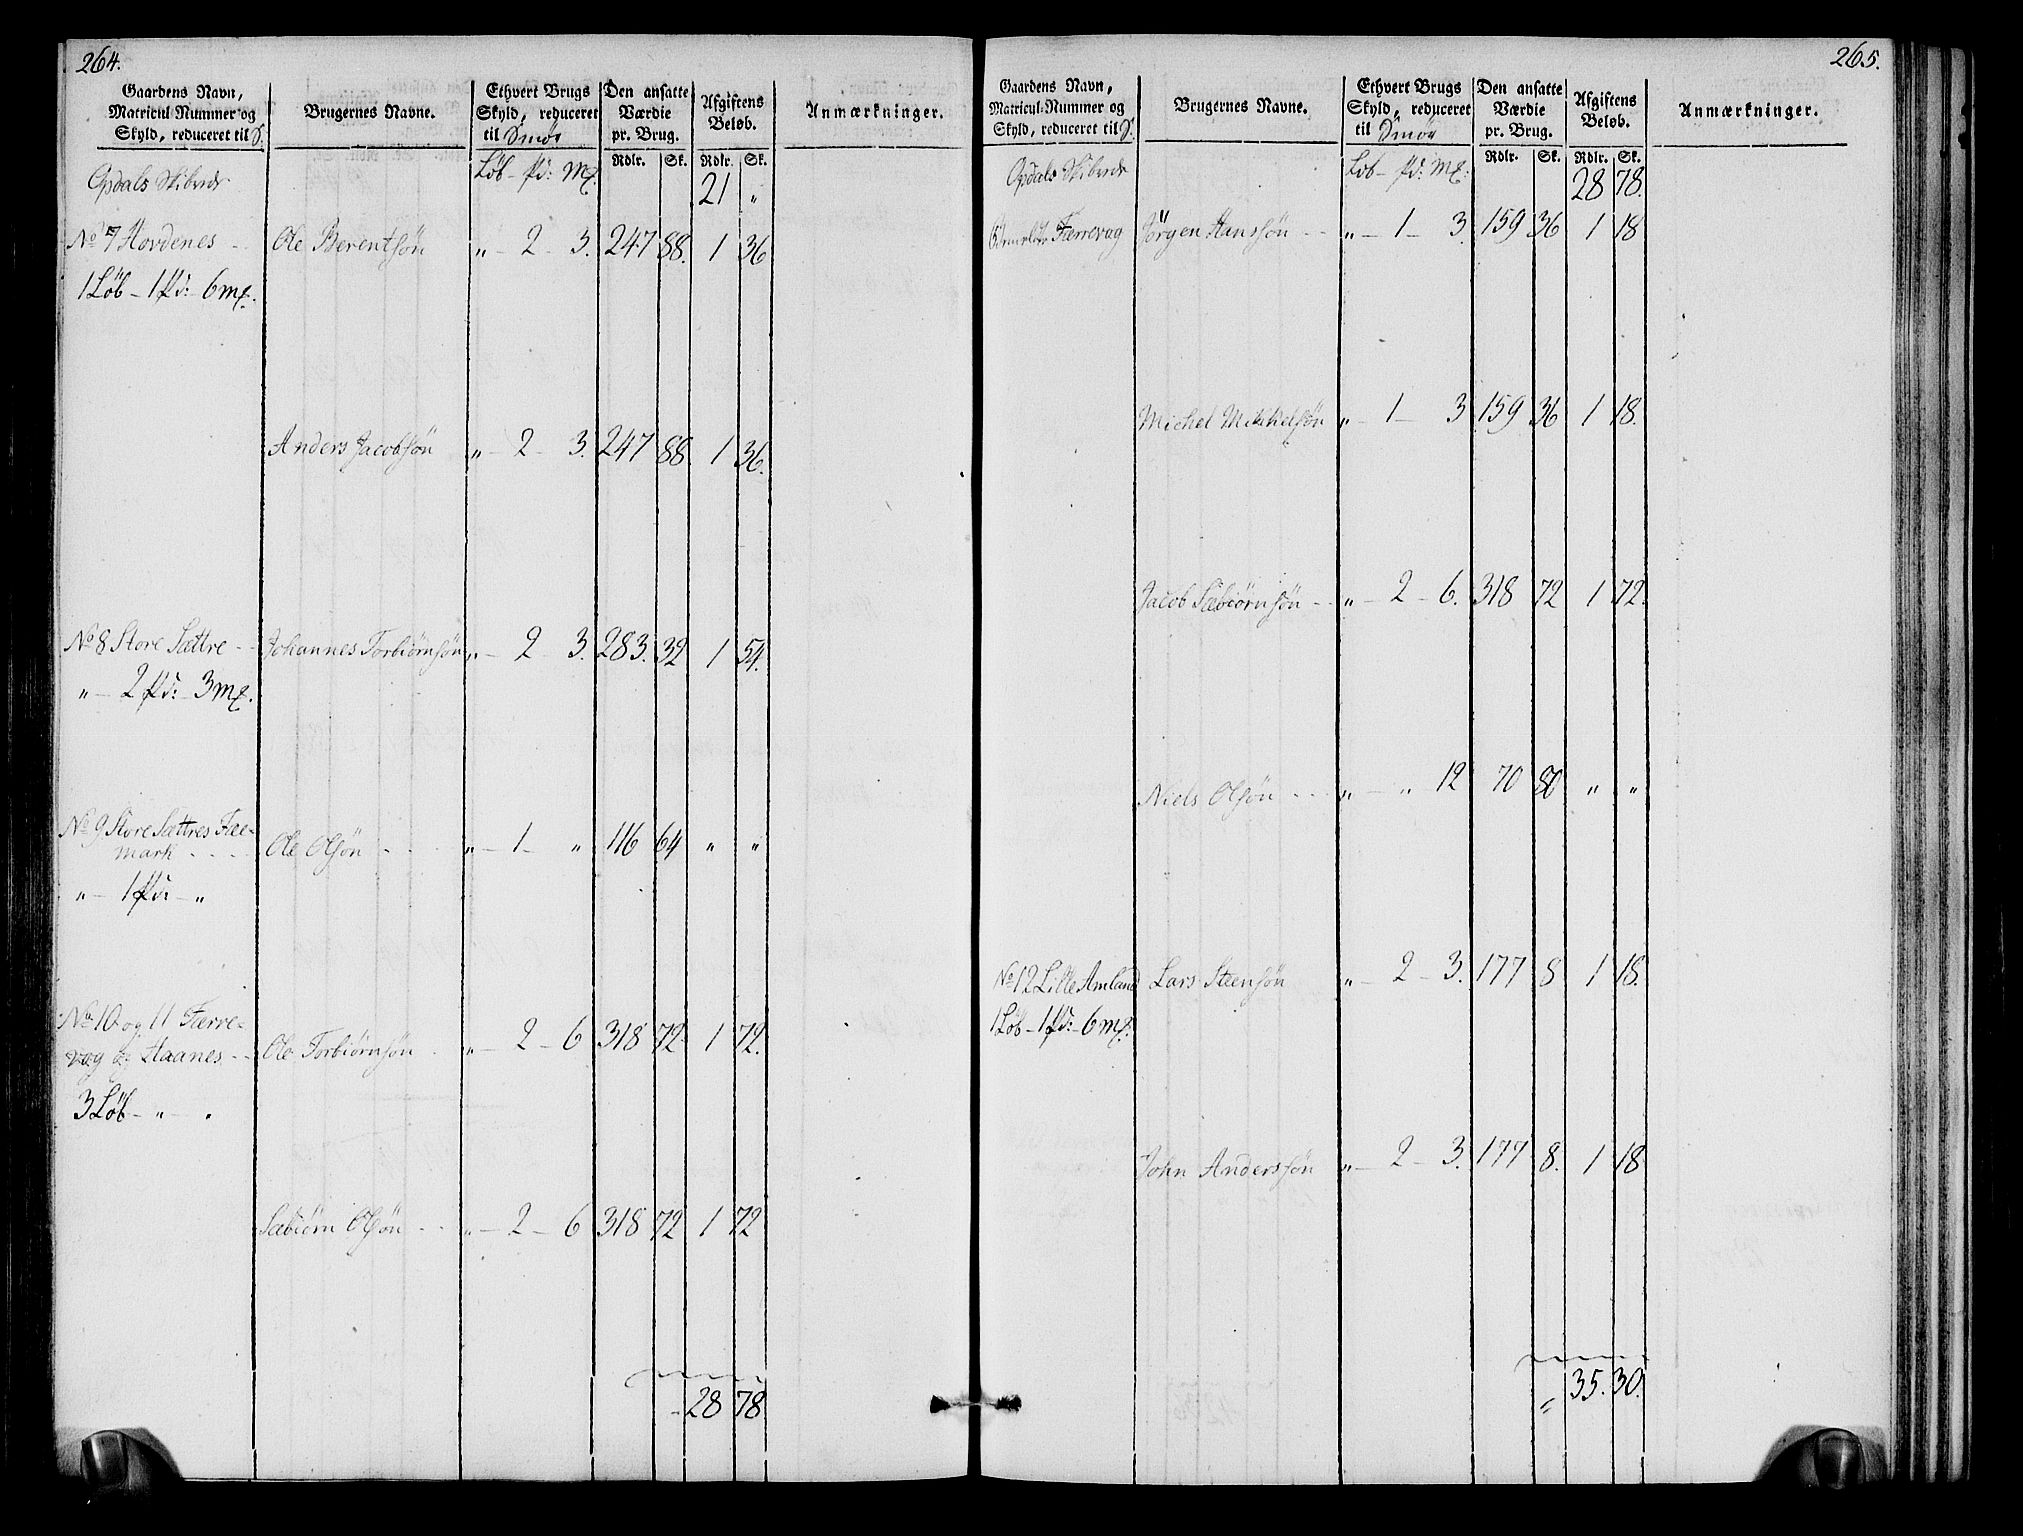 264.
Gaardens Navn, Matricul-Nummer og Skyld, reduceret til S. | Brugernes Navne. | Ethvert Brugs Skyld, reduceret til Smör | Den ansatte Værdie pr. Brug. | Afgiftens Beløb. | Anmærkninger.
Rdlr. | Sk. | Rdlr. | Sk.
Opdals Skibrede | Löb - pd: mk: | 21 "
No 7 Hovdenes - | Ole Berentsön | " - 2 - 3. | 247 | 88. | 1 | 36
1 Löb - 1 pd: 6 mk.
Anders Jacobsön | " - 2 - 3. | 247 | 88. | 1 | 36.
No 8 Store Sættre - - | Johannes Torbiörnsön | " - 2 - 3. | 283. | 32 | 1 | 54.
" - 2 pd: - 3 mk.
No 9 Store Sættres Fæe-
mark - - - - | Ole Olsön - - - | " - 1 - " | 116 | 64 | " | "
" - 1 pd: - "
No 10 og 11 Færre-
vag og Haanes - - | Ole Torbiörnsön - | " - 2 - 6 | 318 | 72 | 1 | 72.
3 Löb - " - "
Sæbiörn Olsön - - | " - 2 - 6 | 318 | 72 | 1 | 72
- 28 | 78
265.
Gaardens Navn, Matricul-Nummer og Skyld, reduceret til S. | Brugernes Navne. | Ethvert Brugs Skyld, reduceret til Smör | Den ansatte Værdie pr. Brug. | Afgiftens Beløb. | Anmærkninger.
Rdlr. | Sk. | Rdlr. | Sk.
Opdals Skibrede | Löb - pd: mk: | 28 | 78.
Færrevag | Jörgen Hanssön - - | " - 1 - 3. | 159 | 36 | 1 | 18
Michel Mikkelsön | " - 1 - 3 | 159 | 36 | 1 | 18.
Jacob Sæbiörnsön - - | " - 2 - 6. | 318 | 72 | 1 | 72.
Niels Olsön - - - | " - " 12 | 70 | 80 | " | "
No 12 Lille Amland | Lars Steensön | " - 2 - 3. | 177 | 8 | 1 | 18.
1 Löb - 1 pd: - 6 mk:
John Anderssön | " - 2 - 3. | 177 | 8. | 1 | 18
" 35. | 30.